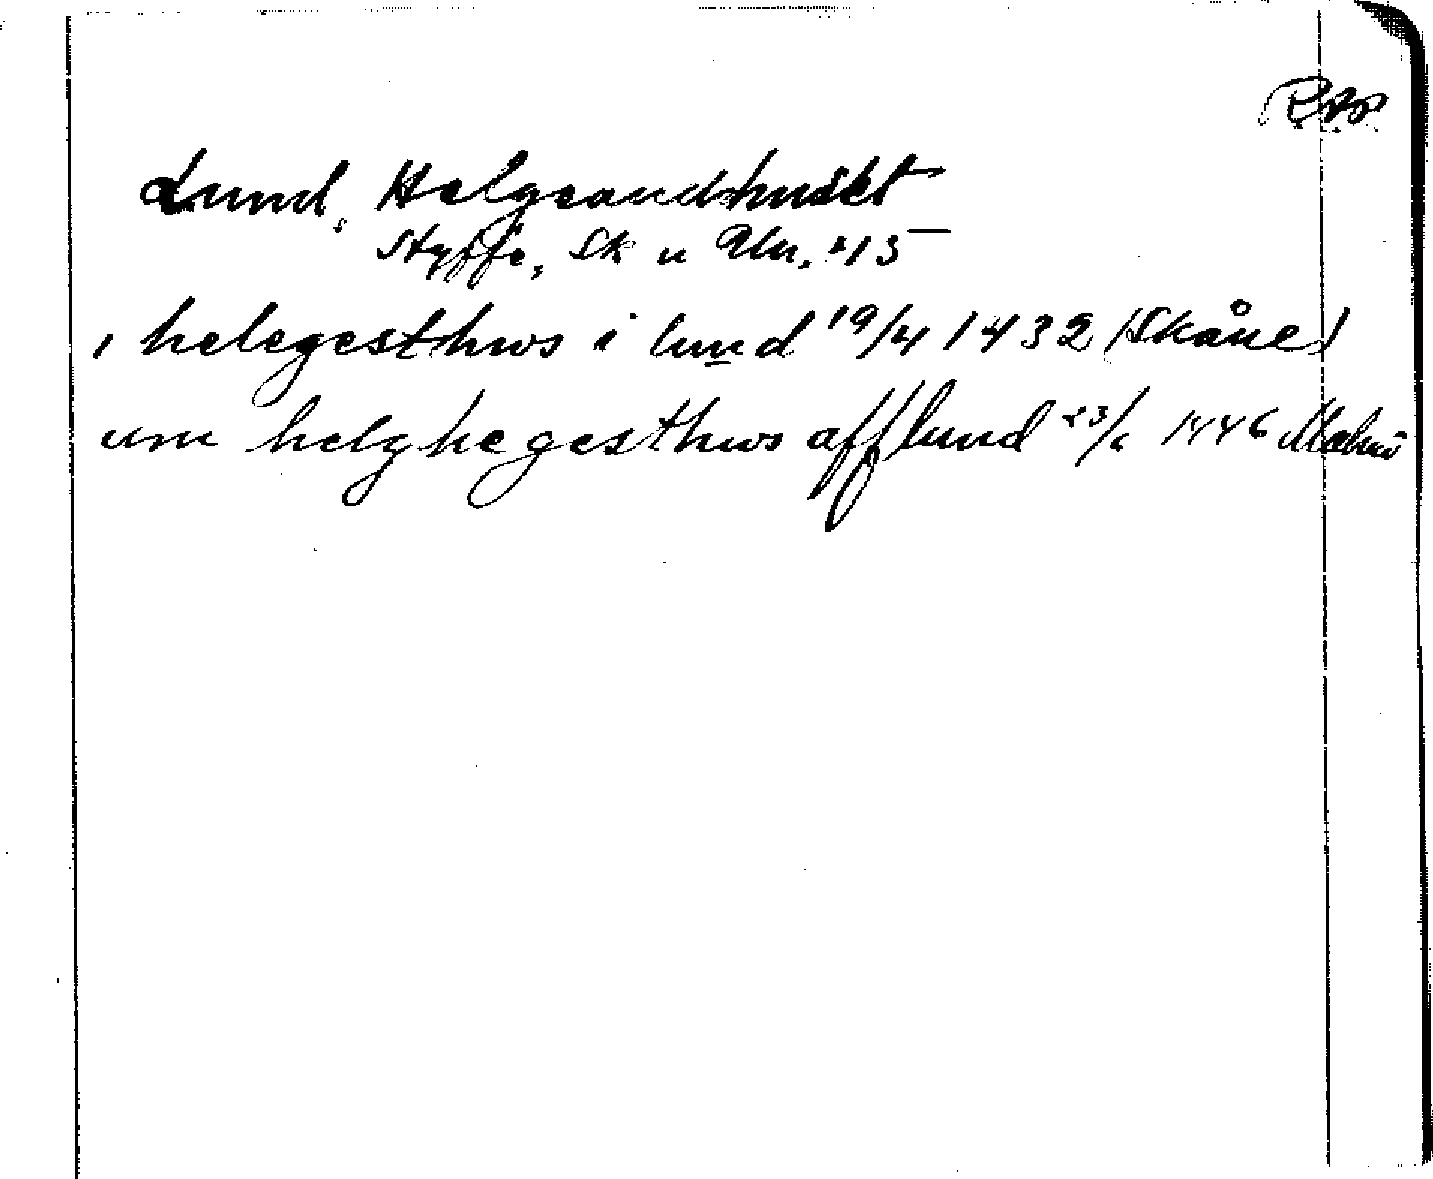 Lund, Helgeandshuset
Styffe, Sk u Un. 415
i helegesthws i lund 19/4 1432 (Skåne)
um helghegesthws aff lund 23/6 1446 Malmö